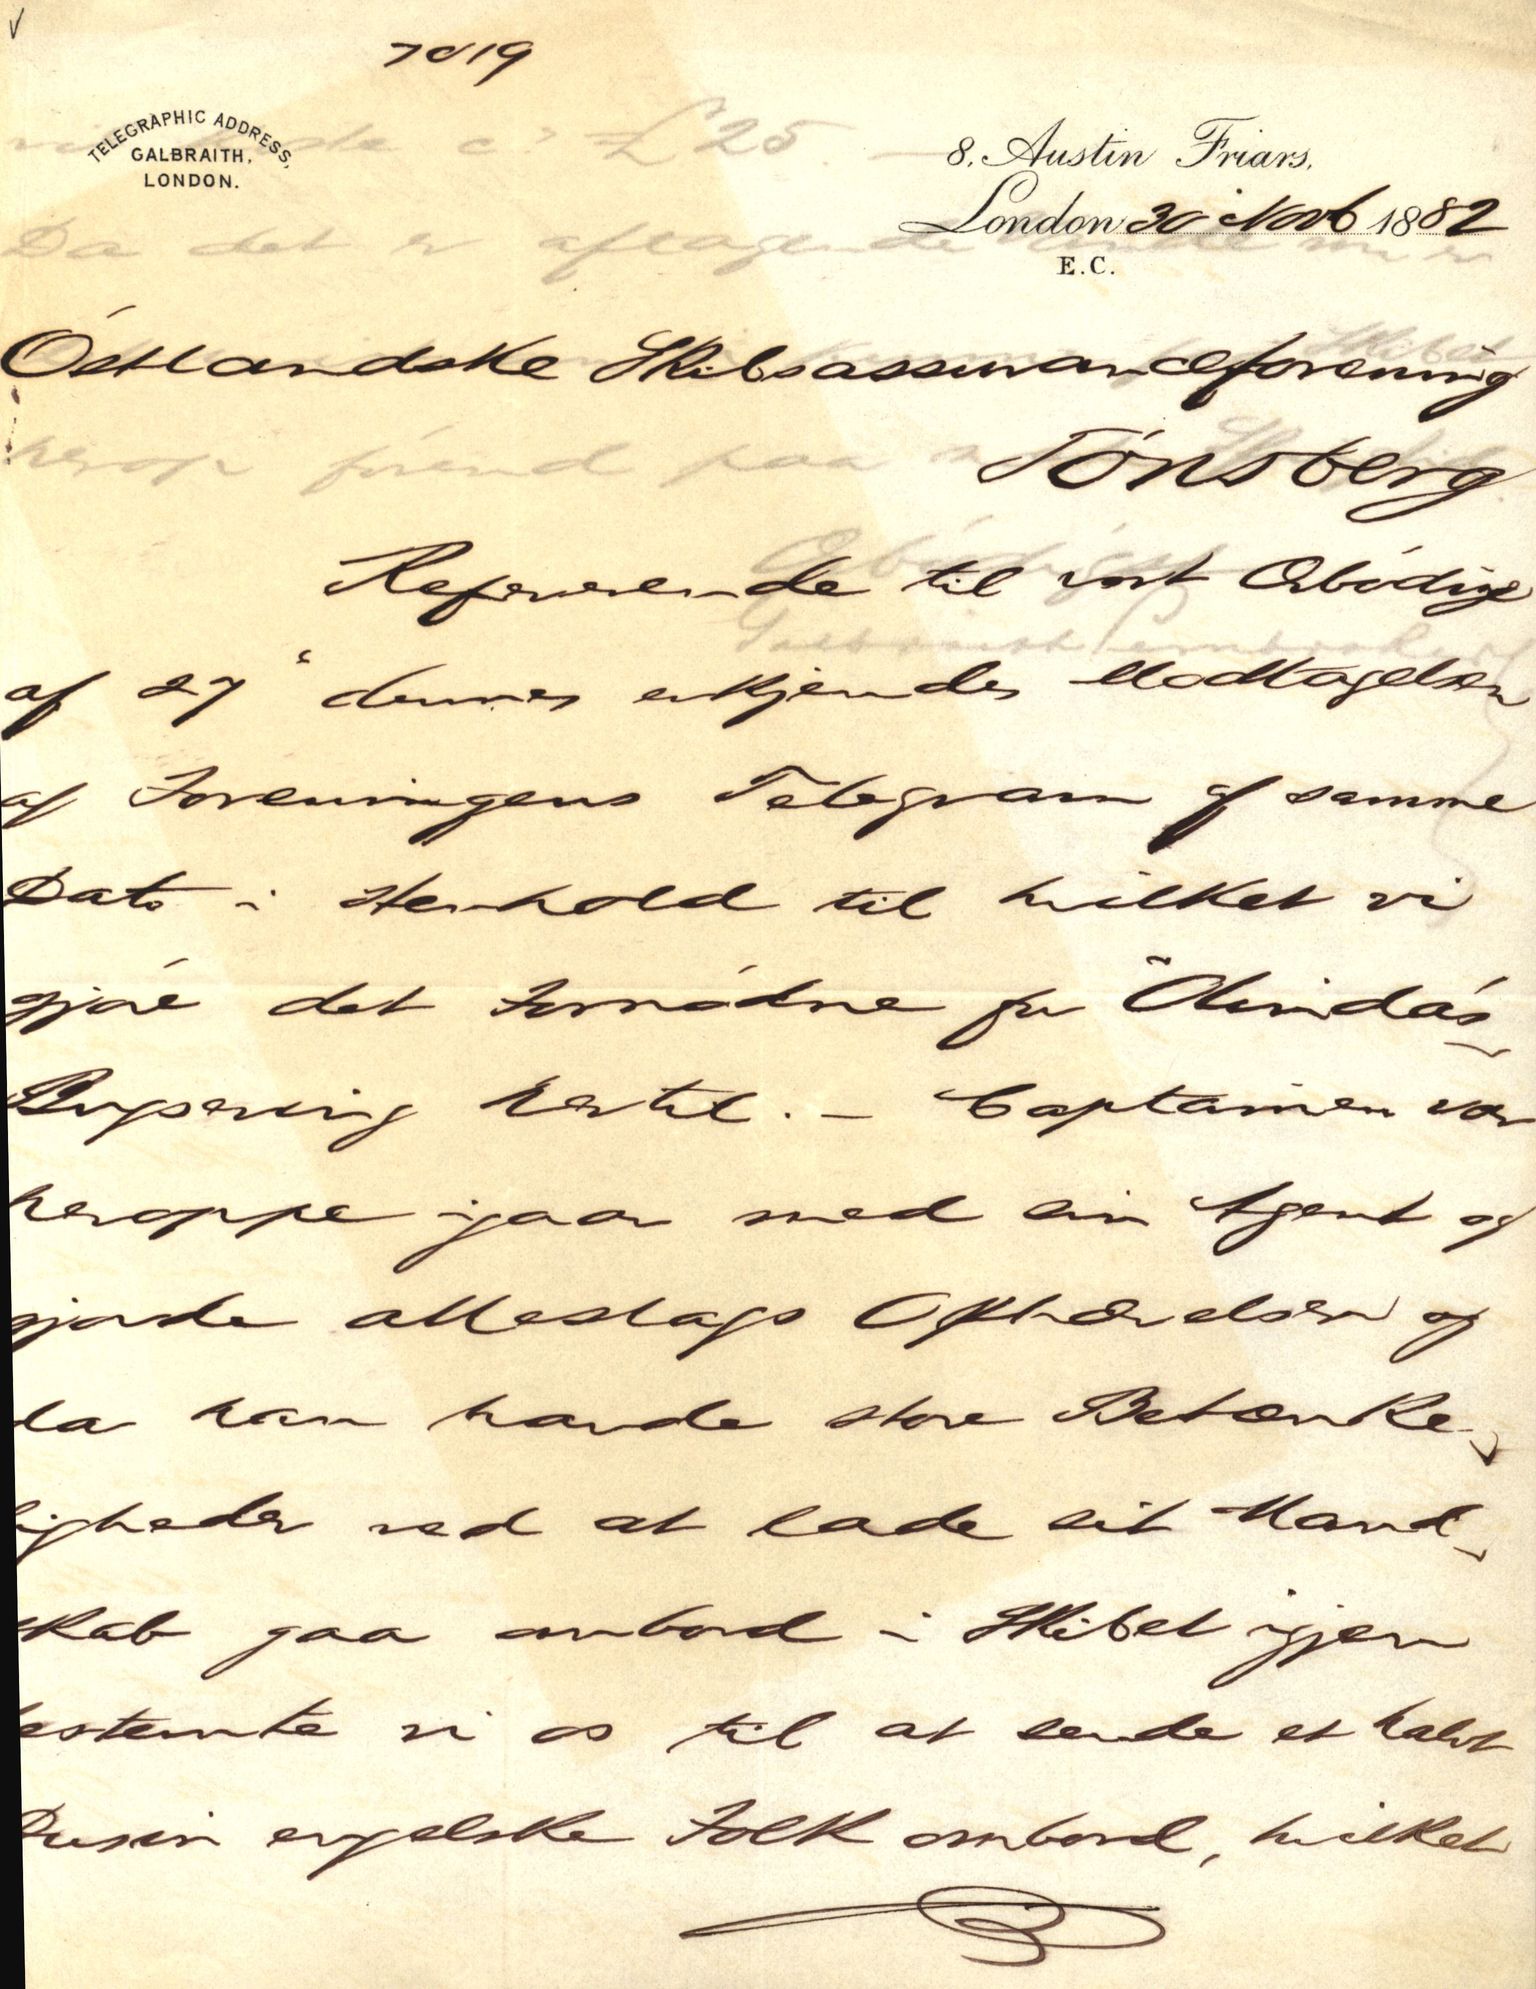 7019
TELEGRAPHIC ADDRESS,
GALBRAITH,
LONDON.
8, Austin Friars,
London 30 Novb 1882
E.C.
Östlandske Skibsassuranceforening
Tönsberg
Refererende til vort Örbödige
af 27' dennes erkjendes Modtagelsen
af Foreningens Telegram af samme
Dato i Henhold til hvilket vi
gjöre det Fornödne for "Olindas
Bugsering hertil. — Captainen var
heroppe igaar med sin Agent og
gjorde alleslags Ophævelser og
da han havde store Betænke-
ligheder ved at lade sit Mand-
skab gaa ombord i Skibet igjen
bestemte vi os til at sende et halvt
Dusin engelske Folk ombord, hvilket